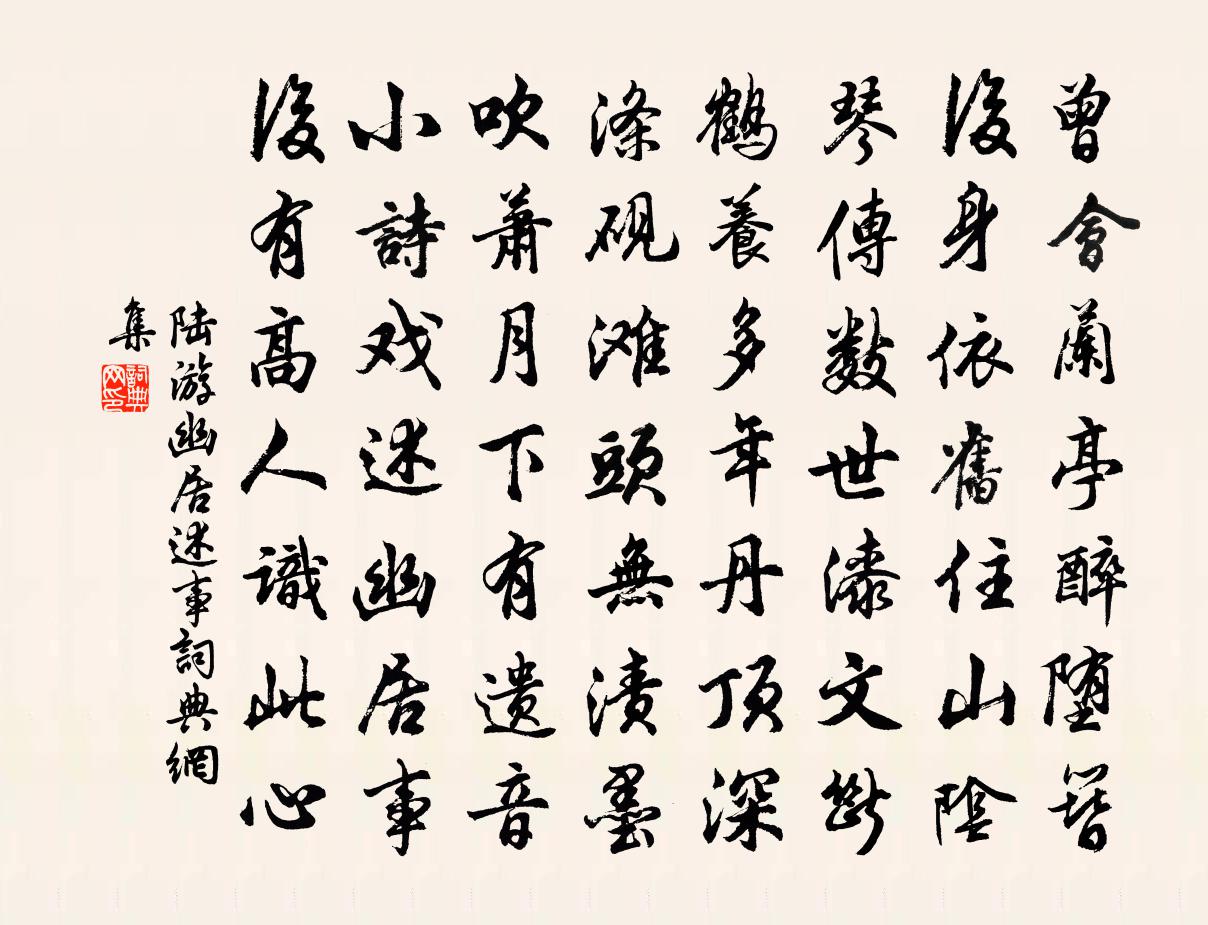 曾會蘭亭醉堕簪
後身依舊住山陰
琴傳數世漆文斷
鶴養多年丹頂深
滌硯滩頭無漬墨
吹蕭月下有遗音
小詩戏述幽居事
後有高人識此心
陆游幽居述事詞典網
集
詞典网印